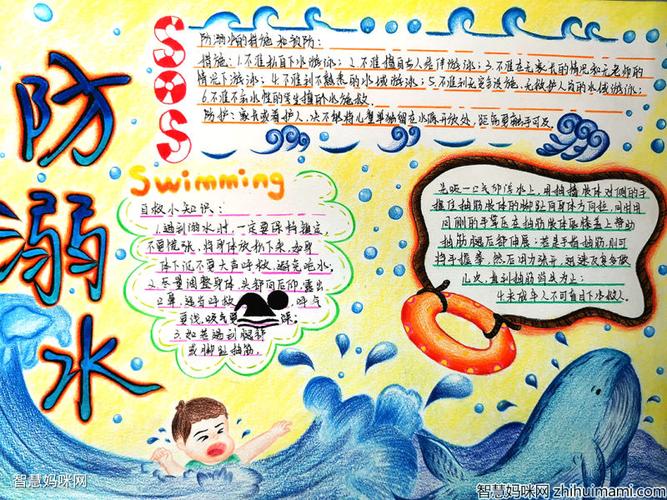 防溺水
SOS
防溺水的措施和预防:
措施:1.不准私自下水游泳;2.不准擅自与人结伴游泳;3.不准在无家长的情况和无老师的
情况下游泳;4.不准到不熟悉的水域游泳;5.不准到无安全设施、无救护人员的水域游泳;
6.不准不会水性的学生擅自下水施救.
防护:家长或看护人,决不能将儿童单独留在水际开放处,距离要触手可及.
Swimming
自救小知识:
1.遇到溺水时,一定要保持镇定,
不要慌张,将身体放松下来,如身
体下沉不要大声呼救,避免呛水;
2.尽量调整身体,头部向后仰,露出
口鼻,适当呼救 呼气
要浅,吸气要 深;
3.如若遇到腿部
或脚趾抽筋,
先吸一口气仰浮水上,用抽筋肢体对侧的手
握住抽筋肢体的脚趾向身体方向拉,同时用
同侧的手掌压在抽筋肢体的膝盖上帮助
抽筋腿后部伸展;若是手指抽筋,则可
将手握拳,然后用力张开,迅速反复多做
几次,直到抽筋消失为止;
4.未成年人不可自行下水救人.
智慧妈咪网
智慧妈咪网 zhihuimami.com